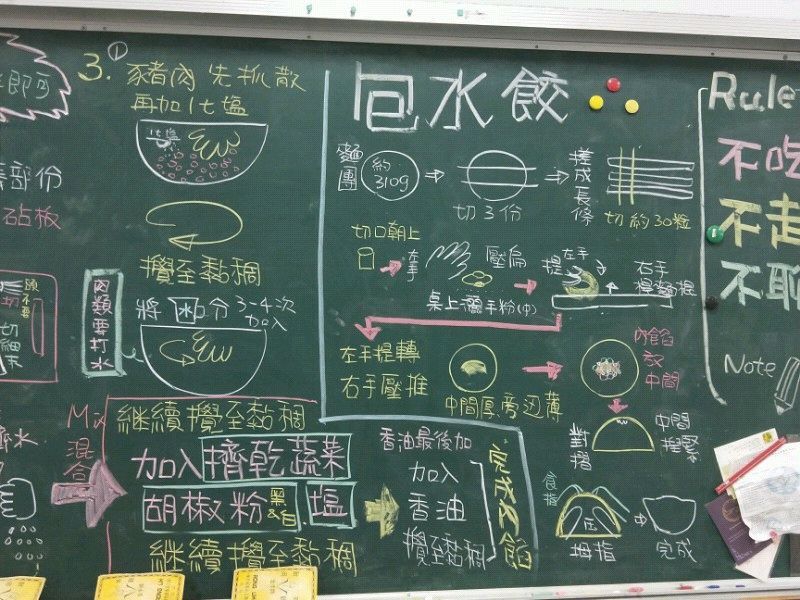 部份
砧板
切細末
混合
3.
①
豬肉先抓散
再加1t塩
1t塩
攪至黏稠
肉類要打水
將水分3-4次
加入
繼續攪至黏稠
加入擠乾蔬菜
胡椒粉 黑白 . 塩
繼續攪至黏稠
香油最後加
加入
香油
攪至黏稠
完成內餡
包水餃
麵團
約
310g
切3份
搓成長條
切約30粒
切口朝上
左手
壓扁
桌上灑手粉(中)
左手
提
右手
左手提轉
右手壓推
中間厚旁边薄
內餡
放
中間
對摺
中間
捏緊
食指
拇指
完成
Rule
不吃
不走
不聊
Note